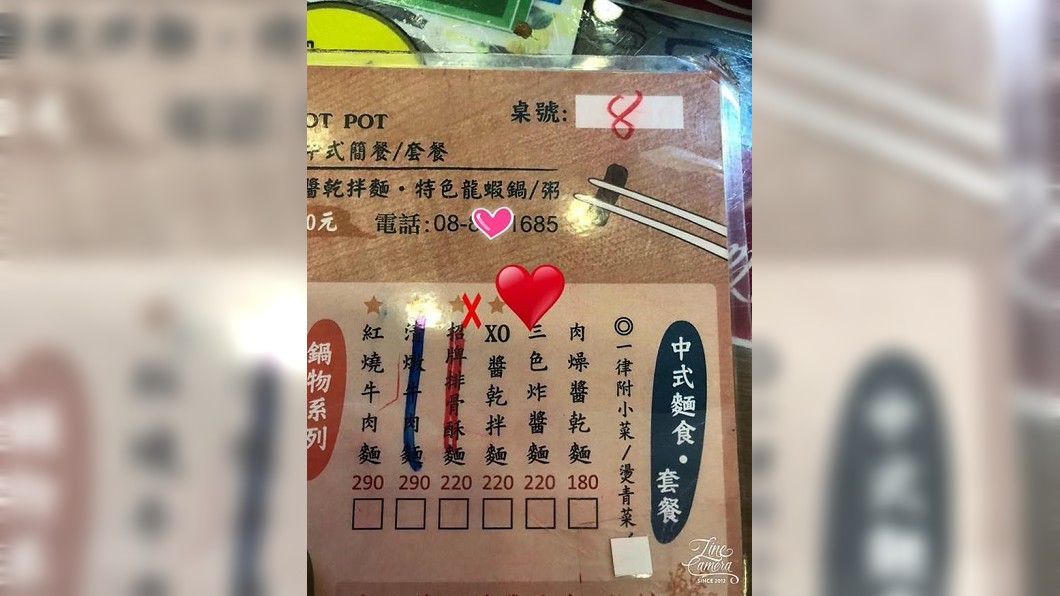 桌號: 8
OT POT
式簡餐/套餐
醬乾拌麵・特色龍蝦鍋/粥
0元 電話:08-8 1685
中式麵食・套餐
◎一律附小菜/燙青菜
肉燥醬乾麵 180
三色炸醬麵 220
XO醬乾拌麵 220
招牌排骨酥麵 220
清燉牛肉麵 290
紅燒牛肉麵 290
鍋物系列
Line Camera
SINCE 2012